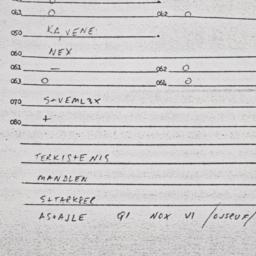 041 0 042 0
050 KA, VENE .
060 NEX
061 – 062 0
063 0 064 0
070 S-VEMLBX
080 +
TERKISTENIS
MANDLEN
SLTARKPER
AS+AJLE GI NOX VI